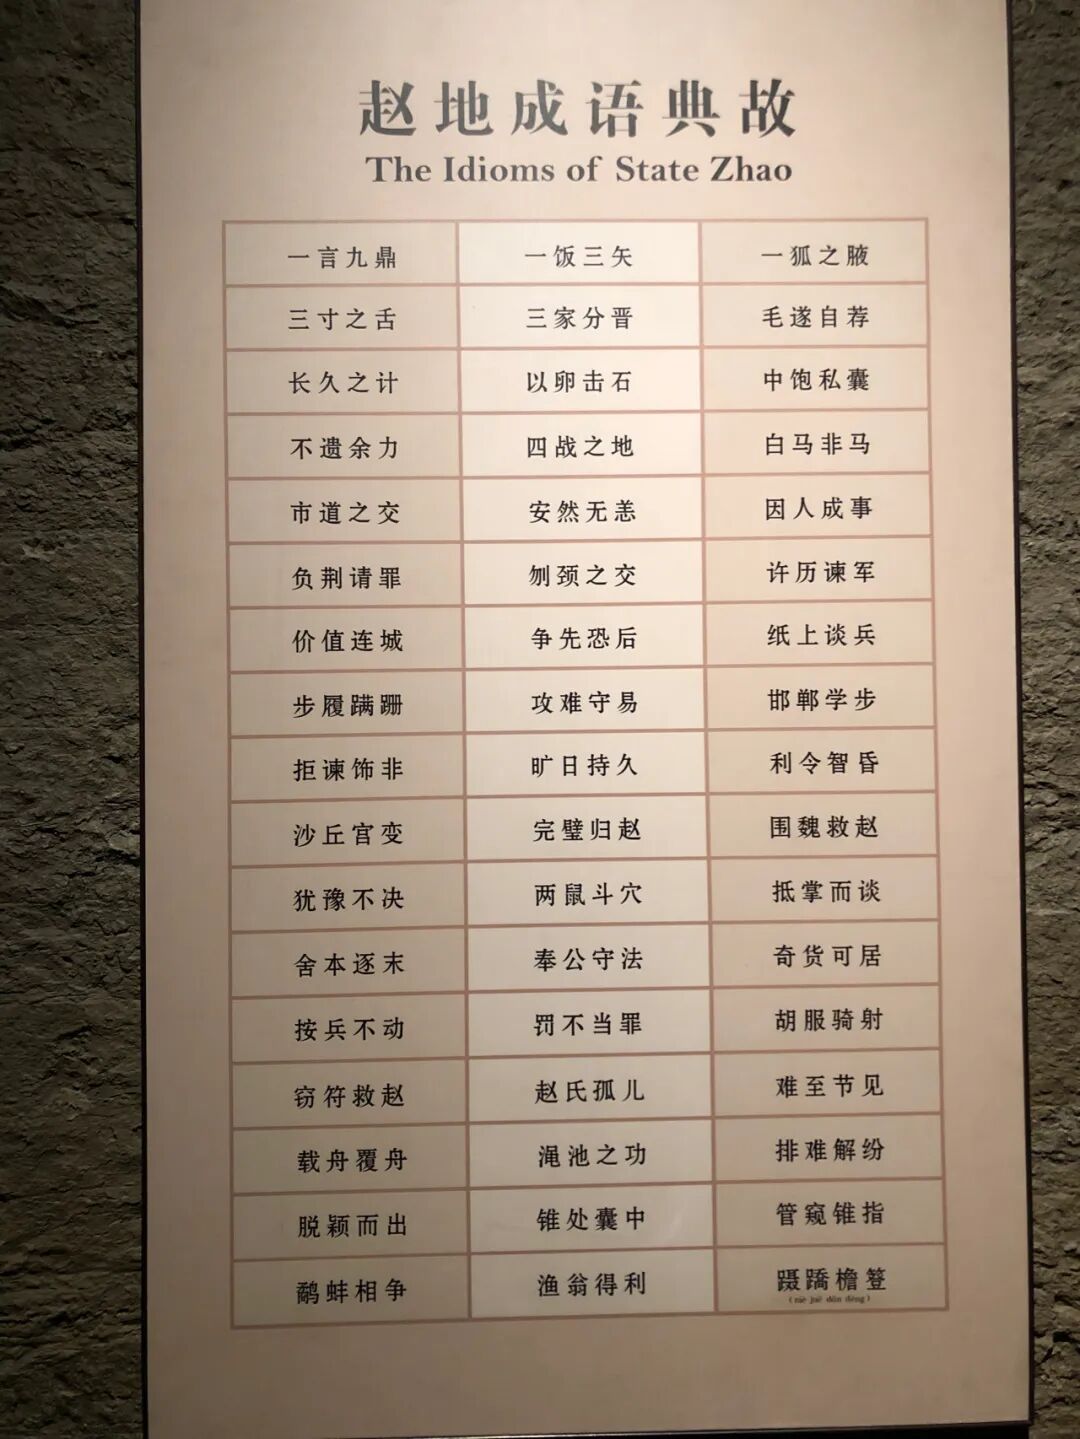 赵地成语典故
The Idioms of State Zhao
一言九鼎 一饭三矢 一狐之腋
三寸之舌 三家分晋 毛遂自荐
长久之计 以卵击石 中饱私囊
不遗余力 四战之地 白马非马
市道之交 安然无恙 因人成事
负荆请罪 刎颈之交 许历谏军
价值连城 争先恐后 纸上谈兵
步履蹒跚 攻难守易 邯郸学步
拒谏饰非 旷日持久 利令智昏
沙丘宫变 完璧归赵 围魏救赵
犹豫不决 两鼠斗穴 抵掌而谈
舍本逐末 奉公守法 奇货可居
按兵不动 罚不当罪 胡服骑射
窃符救赵 赵氏孤儿 难至节见
载舟覆舟 渑池之功 排难解纷
脱颖而出 锥处囊中 管窥锥指
鹬蚌相争 渔翁得利 蹑蹻檐簦
(niè juē dān dēng)